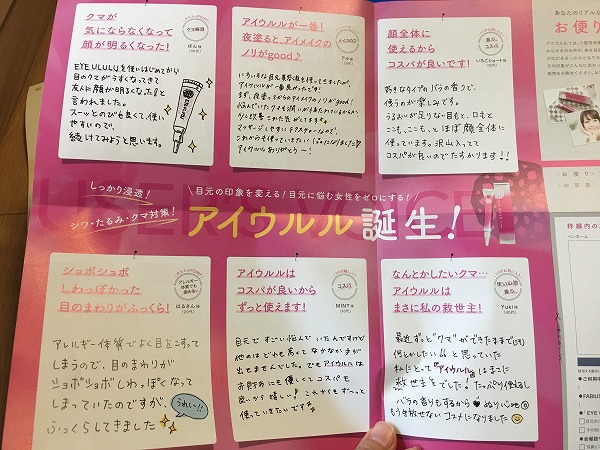 クマが
気にならなくなって
顔が明るくなった!
クマ解消
ぽん様
EYEULULUを使いはじめてから
目のクマがうすくなってきて
友人に顔が明るくなったよと
言われました。
スーッとのびも良くて、使い
やすいので、
続けてみようと思います。
アイウルルが一番!
夜塗ると、アイメイクの
ノリがgood♩
メイクのり◎
アル様
いろいろな目元美容液を使ってきましたが、
アイウルルが一番良かったです!
アイウルルありがとう〜!
顔全体に
使えるから
コスパが良いです!
香り、コスパ
いちごショート様
好きなタイプのバラの香りで、
使うのが楽しみです。
うるおいが足りない目もと、口もと
ここも、ここも、と、ほぼ顔全体に
使っています。沢山入ってて
コスパが良いのでたすかります!!
あなたのリアルな
お便り
しっかり浸透!
シワ・たるみ・クマ対策!
目元の印象を変える!目元に悩む女性をゼロにする!
アイウルル誕生!
ショボショボ
しわっぽかった
目のまわりがふっくら!
アレルギー体質でも使える!
はるさん様
アレルギー体質でよく目をこすって
しまうので、目のまわりが
ショボショボしわっぽくなって
しまっていたのですが、
ふっくらしてきました
うれしい!!
アイウルルは
コスパが良いから
ずっと使えます!
コスパ
MINT様
目元ですごい悩んでいたんですけど
他のはどれも高くてなかなか手が
出せませんでした。でもアイウルルは
お財布にも優しくてコスパも
良いから嬉しい♪これからもずーっと
使っていきたいですね
なんとかしたいクマ…
アイウルルは
まさに私の救世主!
使い心地、香り
Yuki様
最近ずっと"クマ"ができたままで(泣)
何とかしたい!!と思っていた
私にとって"アイウルル"はまさに
救世主でした!たっぷり使えるし
バラの香りもするから♥ぬり心地◎
もう手放せないコスメになりました